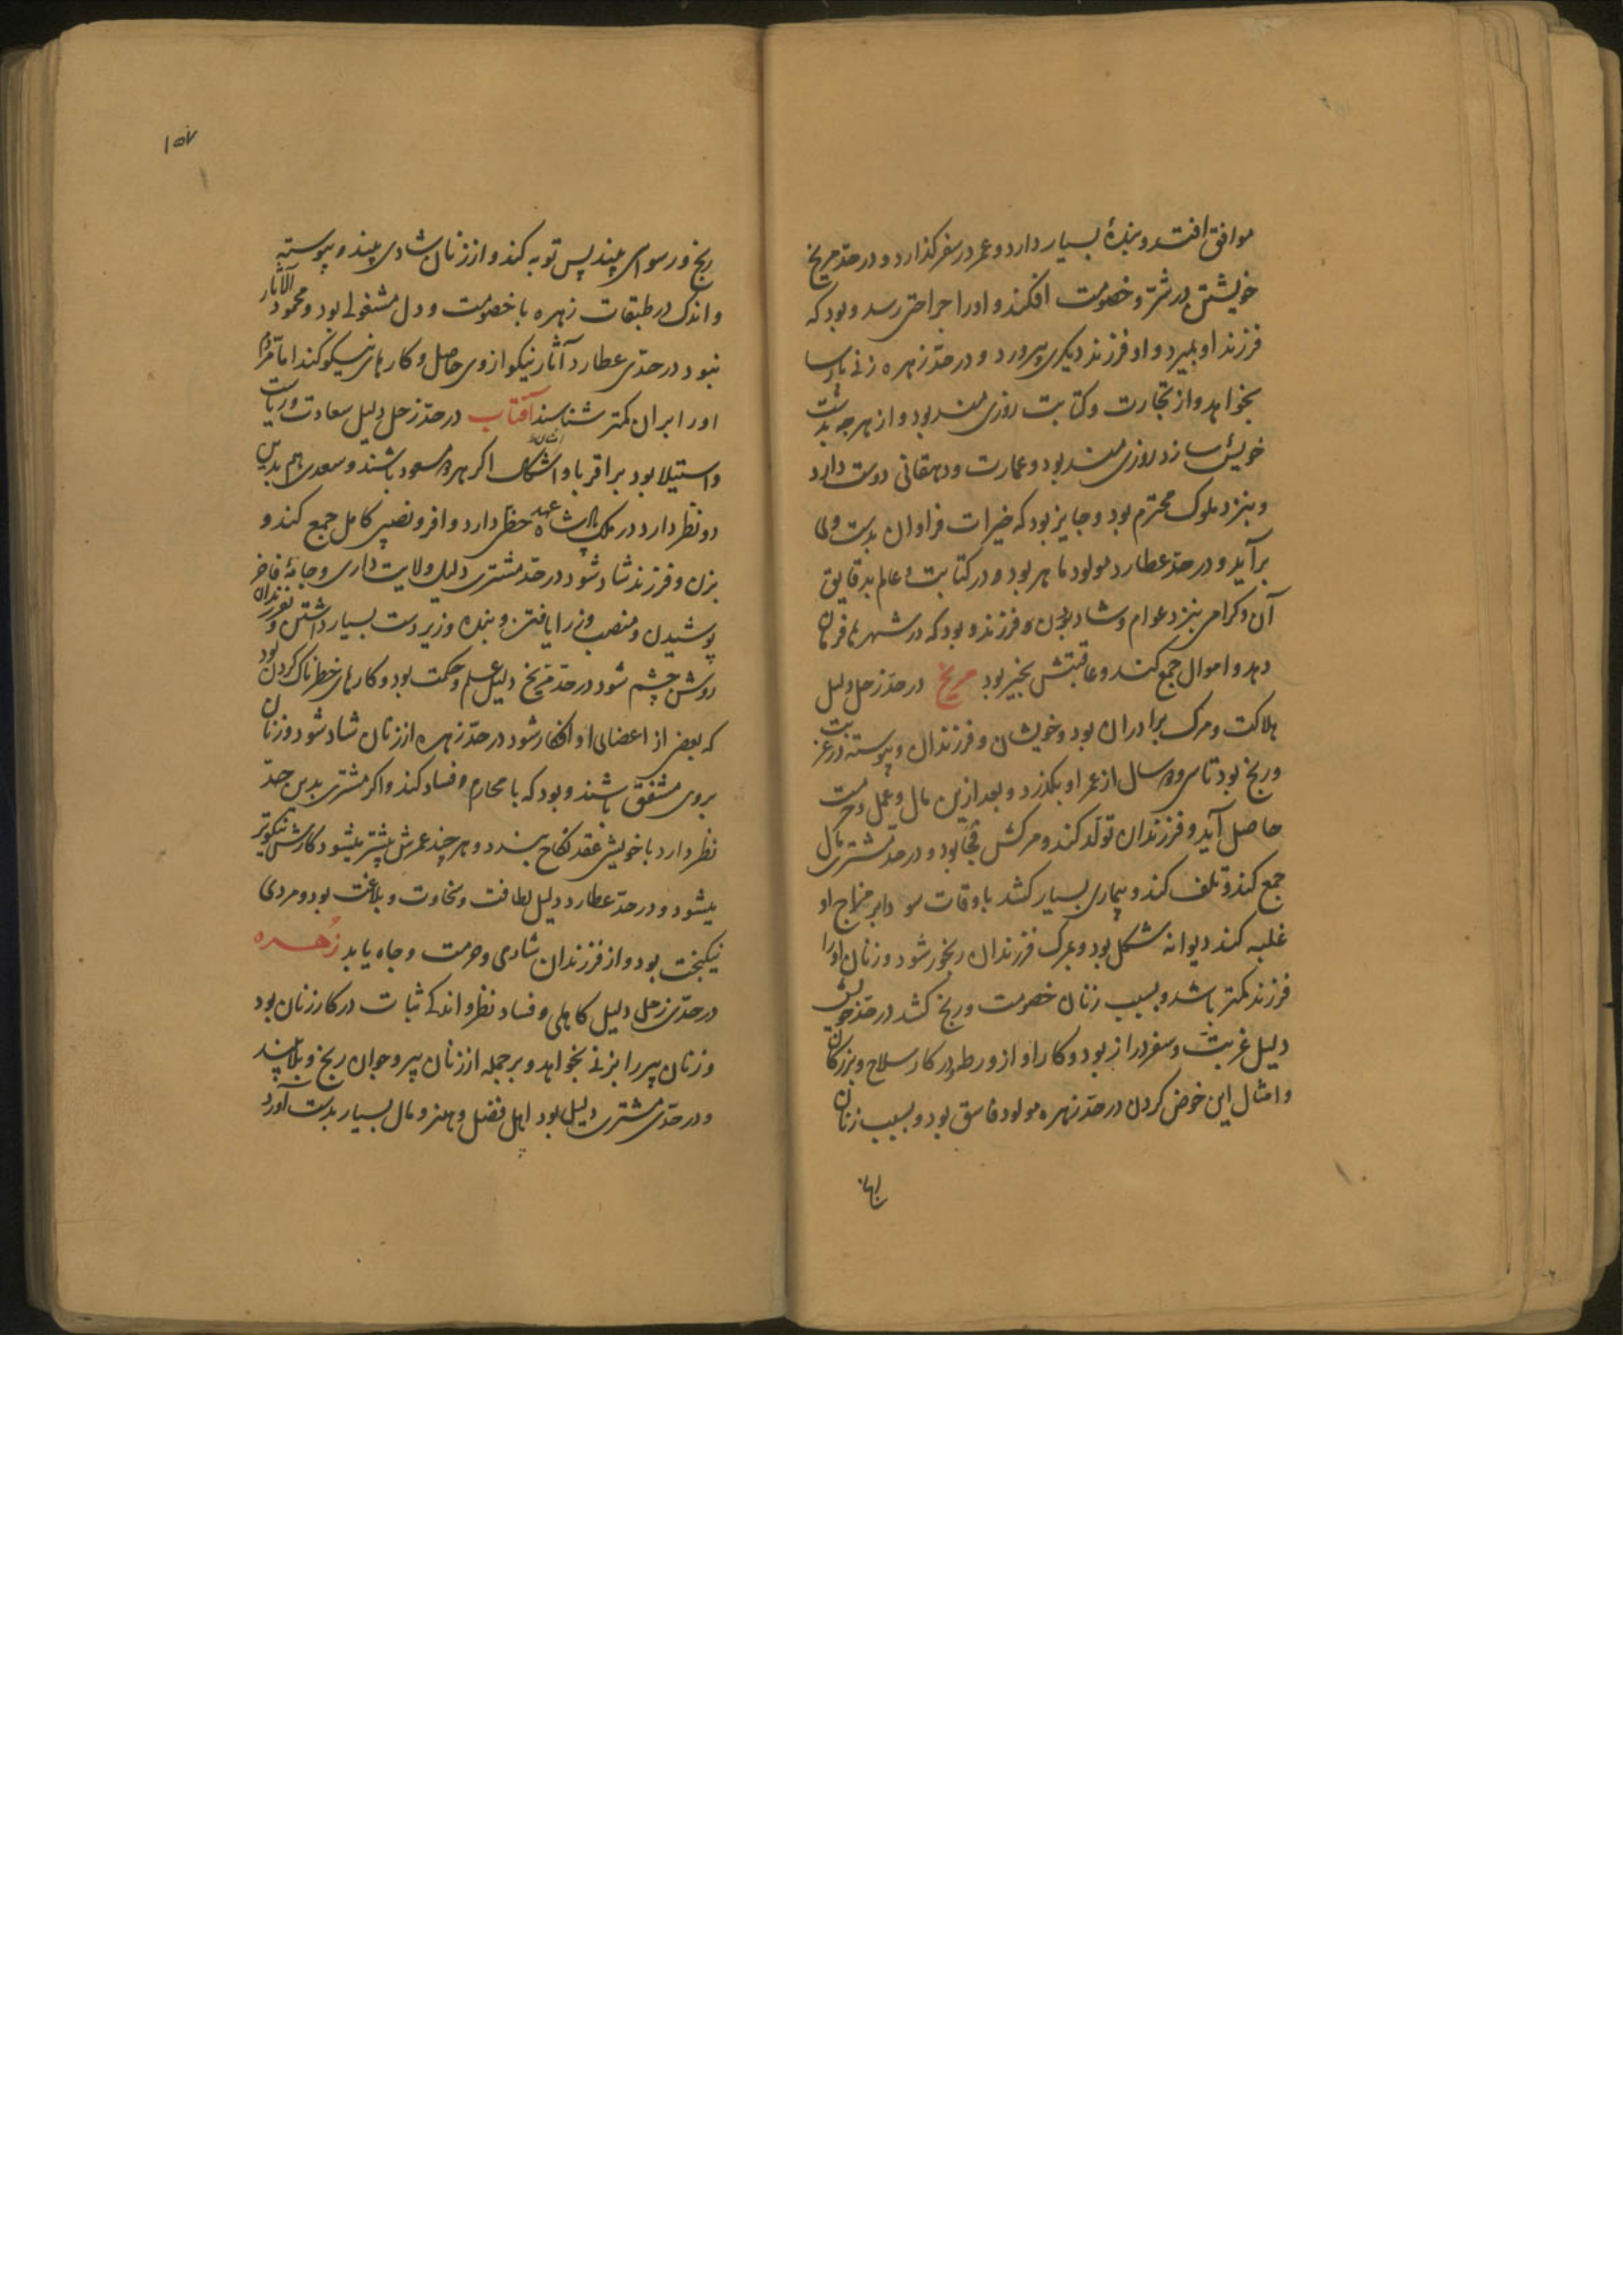 موافق افتد و بندهٔ بسیار دارد و عمر در سفر کذارد و در حدّ مریخ
خویشتن در شرّ و خصومت افکند و او را جراحتی رسد و بود که
فرزند او بمیرد و او فرزند دیکری پرورد و در حدّ زهره زنی پارسا
بخواهد و از تجارت و کتابت روزی مند بود و از هرچه بدست
خویش سازد روزی مند بود و عمارت و دهقانی دوست دارد
و بنزد ملوک محترم بود و جایز بود که خیرات فراوان بدست وی
برآید و در حدّ عطارد مولود ماهر بود و در کتابت و عالم بدقایق
آن و کرامی بنزد عوام و شاد بزن و فرزند و بود که در شهرها فرمان
دهد و اموال جمع کند و عاقبتش بخیر بود مریخ در حدّ زحل دلیل
هلاکت و مرک برادران بود و خویشان و فرزندان و پیوسته در غربت
و رنج بود تا سی و سال از عمر او بکذرد و بعد ازین مال و عمل و حرمت
حاصل آید و فرزندان تولّد کند و مرکش فجا بود و در حدّ مشتری مال
جمع کند و تلف کند و بیماری بسیار کشد باوقات سودا بر مزاج او
غلبه کند دیوانه شکل بود و بمرک فرزندان رنجور شود و زنان او را
فرزند کمتر باشد و بسبب زنان خصومت و رنج کشد در حدّ خویش
دلیل غربت و سفر دراز بود و کار او از و در کار سلاح و بزرکان
و امثال این خوض کردن در حدّ زهره مولود فاسق بود و بسبب زنان
۱۵۷
رنج و رسوای بیند پس توبه کند و از زنان شادی بیند و پیوسته
و اندک در طبقات زهره با خصومت و دل مشغولی بود و محمود الآثار
نبود در حدّی عطارد آثار نیکو از وی حاصل و کارهای نیکو کند اما مردم
او را بران کمتر شناسند آفتاب در حدّ زحل دلیل سعادت و ریاست
و استیلا بود بر اقربا و اشکال اکر هر دو مسعود باشند و سعدی هم بدین
دو نظر دارد در ملک پادشاه عهد حظی دارد وافر و نصیبی کامل جمع کند و
بزن و فرزند شاد شود در حدّ مشتری دلیل ولایت داری و جامهٔ فاخر
پوشیدن و منصب وزرا یافتن و بنده و زیردست بسیار داشتن و بفرزندان
روشن چشم شود در حدّ مریخ دلیل علم و حکمت بود و کارهای خطرناک کردن بود
که بعضی از اعضای او افکار شود در حدّ زهره از زنان شاد شود و زنان
بروی مشفق باشند و بود که با محارم فساد کند و اکر مشتری بدین حدّ
نظر دارد با خویش عقد نکاح بندد و هر چند عمرش بیشتر میشود کارش نیکوتر
میشود و در حدّ عطارد دلیل لطافت و سخاوت و بلاغت بود و مردی
نیکبخت بود و از فرزندان شادی و حرمت و جاه یابد زُهره
در حدّی زحل دلیل کاهلی و فساد نظر و اندکی ثبات در کار زنان بود
و زنان پیر را بزنی بخواهد و بر جمله از زنان پیر و جوان رنج و بلا بیند
و در حدّی مشتری دلیل بود اهل فضل و هنر و مال بسیار بدست آورد